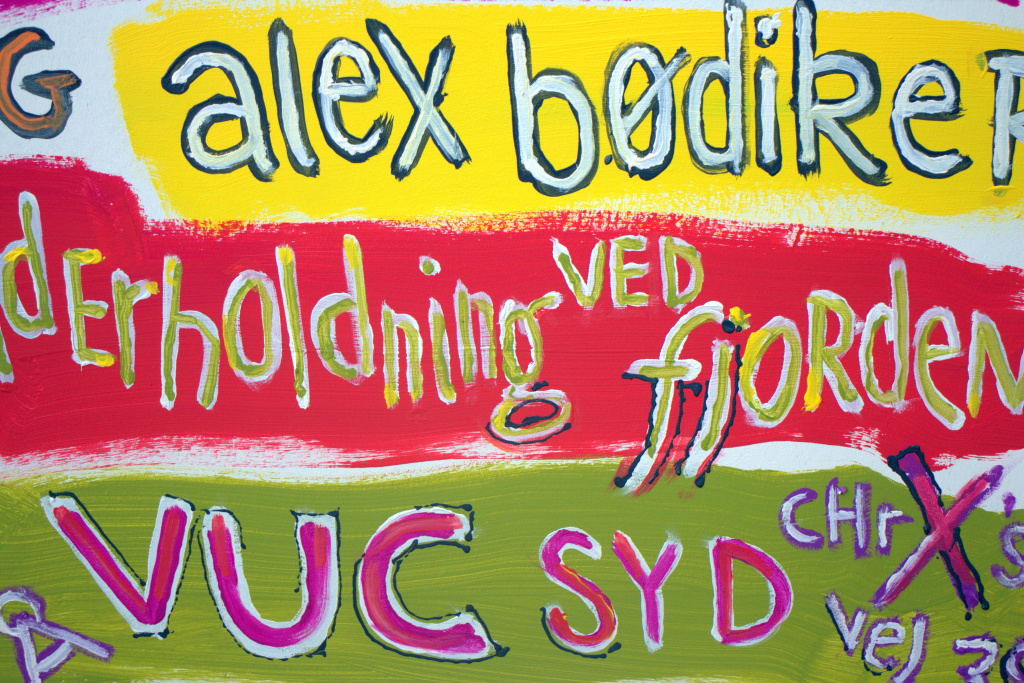 G alex bødiker
derholdning VED fjorden
VUC SYD CHrX's
A vej